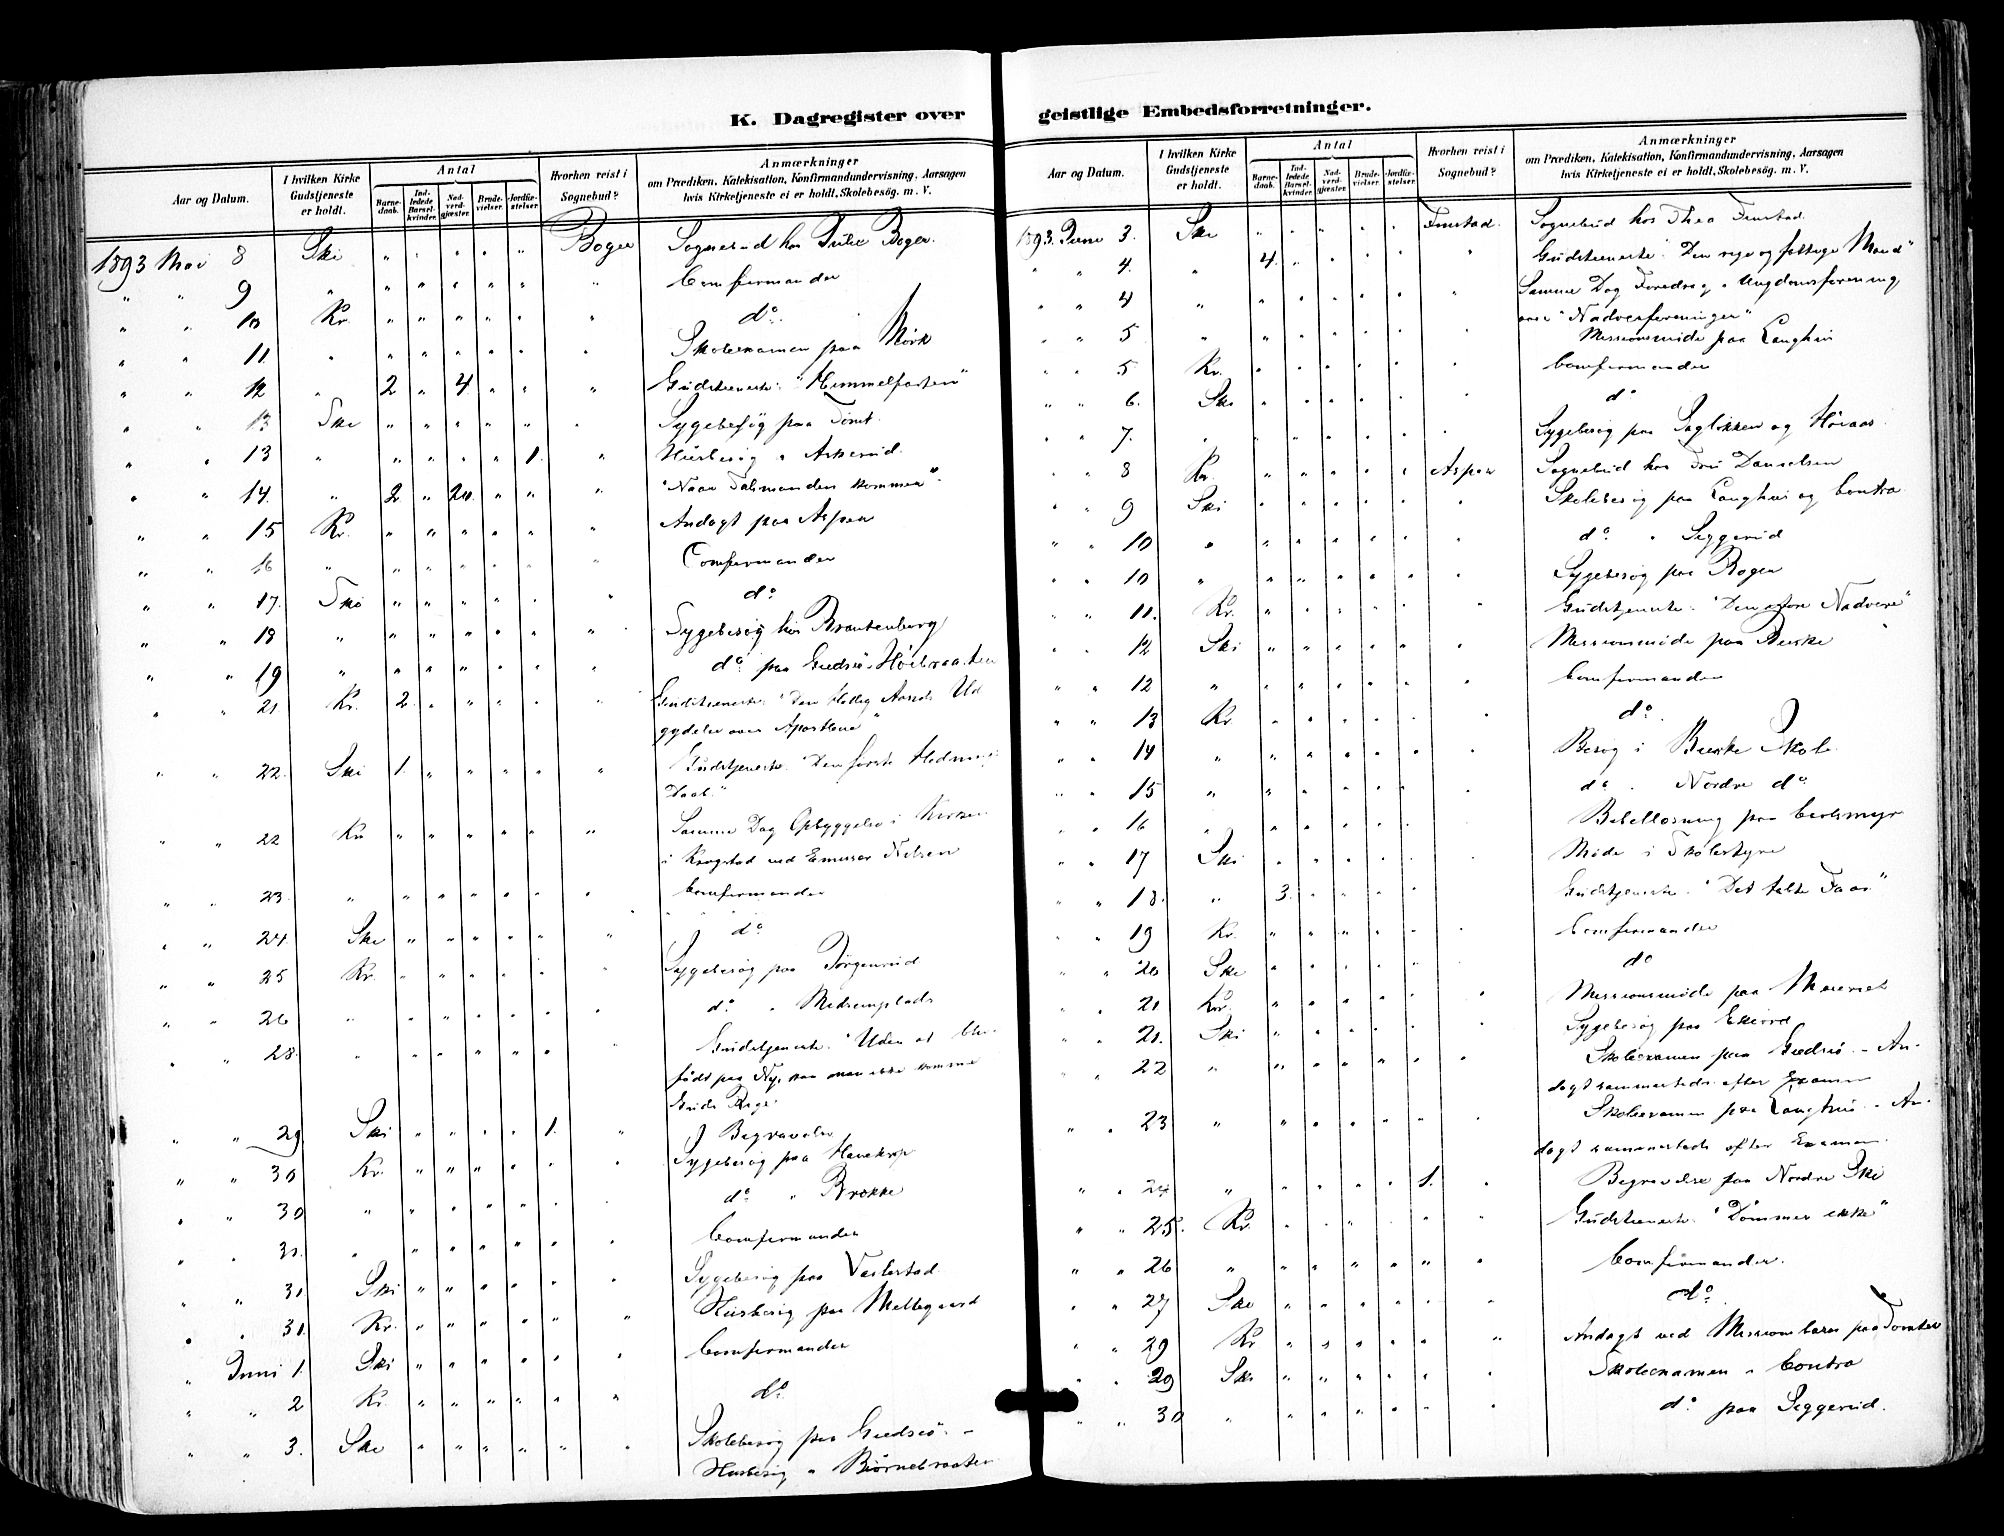 K. Dagregister over geistlige Embedsforretninger.
Aar og Datum. | I hvilken Kirke Gudstjeneste er holdt. | Antal | Barnedaab. | Indledede Barselkvinder. | Nadverdgjæster. | Brudevielser. | Jordfæstelser. | Hvorhen reist i Sognebud? | Anmærkninger om Prædiken, Katekisation, Konfirmandundervisning, Aarsagen hvis Kirketjeneste ei er holdt, Skolebesøg. m. V.
1893 Mai 8 Ski " " " " " Boger Sognebud hos Julie Boger.
" " 9 " " " " " " " Comfirmander
" " 10 Kr. " " " " " " do.
" " 11 " " " " " " " Skoleexamen paa Mørk
" " 12 " 2 " 4 " " " Gudstjeneste: "Himmelfarten"
" " 13 Ski " " " " " " Sygebesøg paa Tomt.
" " 13 " " " " " 1. " Husbesøg " Askerud.
" " 14 " 2 " 20 " " " "Naar Talsmanden kommer".
" " 15 Kr. " " " " " " Andagt paa Aspen
" " 16 " " " " " " " Comfirmander
" " 17. Ski " " " " " " do
" " 18 " " " " " " " Sygebesøg hos Brantenborg
" " 19 " " " " " " " do paa Gudsiø-Høibraaten
" " 21 Kr. 2 " " " " " Gudstjeneste: "Den Hellig Aands Ud
gydelse over Apostlene"
" " 22. Ski 1. " " " " " Gudstjeneste. "Den første Hedning
Daab."
" " 22 Kr " " " " " " Samme Dag Opbyggelse i Kirken
i Kragstad ved Emissær Nilsen
" " 23 " " " " " " " Comfirmander
" " 24 Ski " " " " " " do
" " 25 Kr. " " " " " " Sygebesøg paa Jørgenrud
" " 26 " " " " " " " do. "
" " 28. " " " " " " " Gudstjeneste. "Uden at bli
født paa Ny, kan man ikke komme
Guds Rige.
" " 29 Ski " " " " 1. " Begravelse
" " 30 Kr. " " " " " " Sygebesøg paa
" " 30 " " " " " " " do " Brække
" " 31. " " " " " " " Comfirmander
" " 31 Ski " " " " " " Sygebesøg paa Vestestad
" " 31. Kr. " " " " " " Husbesøg paa Mellegaard
" Juni 1. Ski " " " " " " Comfirmander
" " 2 Kr. " " " " " " do
" " 3. Ski " " " " " " Skolebesøg paa Gudsiø. -
Husbesøg " Bjørnebraaten
Aar og Datum. | I hvilken Kirke Gudstjeneste er holdt. | Antal | Barnedaab. | Indledede Barselkvinder. | Nadverdgjæster. | Brudevielser. | Jordfæstelser. | Hvorhen reist i Sognebud? | Anmærkninger om Prædiken, Katekisation, Konfirmandundervisning, Aarsagen hvis Kirketjeneste ei er holdt, Skolebesøg. m. V.
1893. Juni 3. Ski " " " " " Finstad. Sognebud hos Thea Finstad.
" " 4. " 4. " " " " " Gudstjeneste: "Den rige og fattige Mand"
" " 4 " " " " " " " Samme Dag Foredrag i Ungdomsforening
over "Nadverforeninger"
" " 5 " " " " " " " Missionsmøde paa Langhus
" " 5 Kr. " " " " " " Comfirmander
" " 6. Ski " " " " " " do
" " 7. " " " " " " " Sygebesøg paa Bagløkken og Høiaas.
" " 8 Kr. " " " " " Aspen Sognebud hos Fru Danielsen
" " 9 Ski " " " " " " Skolebesøg paa Langhus og Contra
" " 10 " " " " " " " do. " Siggerud
" " 10 " " " " " " " Sygebesøg paa Boger
" " 11. Kr. " " " " " " Gudstjeneste. "Den store Nadvere"
" " 12 Ski " " " " " " Missionsmøde paa Buske
" " 12 " " " " " " " Comfirmander
" " 13 Kr " " " " " " do.
" " 14 " " " " " " " Besøg i Buske Skole
" " 15 " " " " " " " do " Nordre do
" " 16 " " " " " " " Bibellæsning paa Carlsmyr
" " 17 Ski " " " " " " Møde i Skolestyre
" " 18. " 3. " " " " " Gudstjeneste. "Det tabte Faar"
" " 19 Kr. " " " " " " Comfirmander
" " 20 Ski " " " " " " do
" " 21 Kr. " " " " " " Missionsmøde paa
" " 21. Ski " " " " " " Sygebesøg paa
" " 22 " " " " " " " Skoleexamen paa Gudsiø. - An-
dagt sammesteds efter Examen
" " 23 " " " " " " " Skoleexamen paa Langhus - An-
dagt sammesteds efter Examen.
" " 24 " " " " " 1. " Begravelse paa Nordre Ski
" " 25. Kr. " " " " " " Gudstjeneste. "Dømmer ikke"
" " 26 " " " " " " " Comfirmander.
" " 27 Ski " " " " " " do.
" " 29 Kr " " " " " " Andagt ved Missionbasar paa Tomter
" " 29 Ski " " " " " " Skoleexamen " Contra
" " 30 " " " " " " " do paa Siggerud.